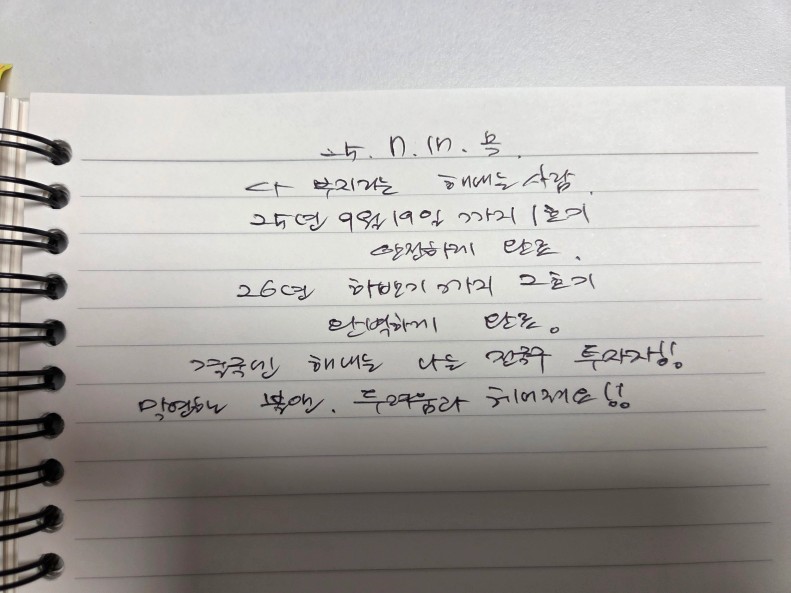 25. 11. 10. 목.
나 부지라는 해내는 사람.
25년 9월 19일 까지 1호기
안전하게 완료.
26년 하반기 까지 2호기
완벽하게 완료.
결국엔 해내는 나는 전국구 투자자!!
막연한 불안. 두려움과 헤어져요!!